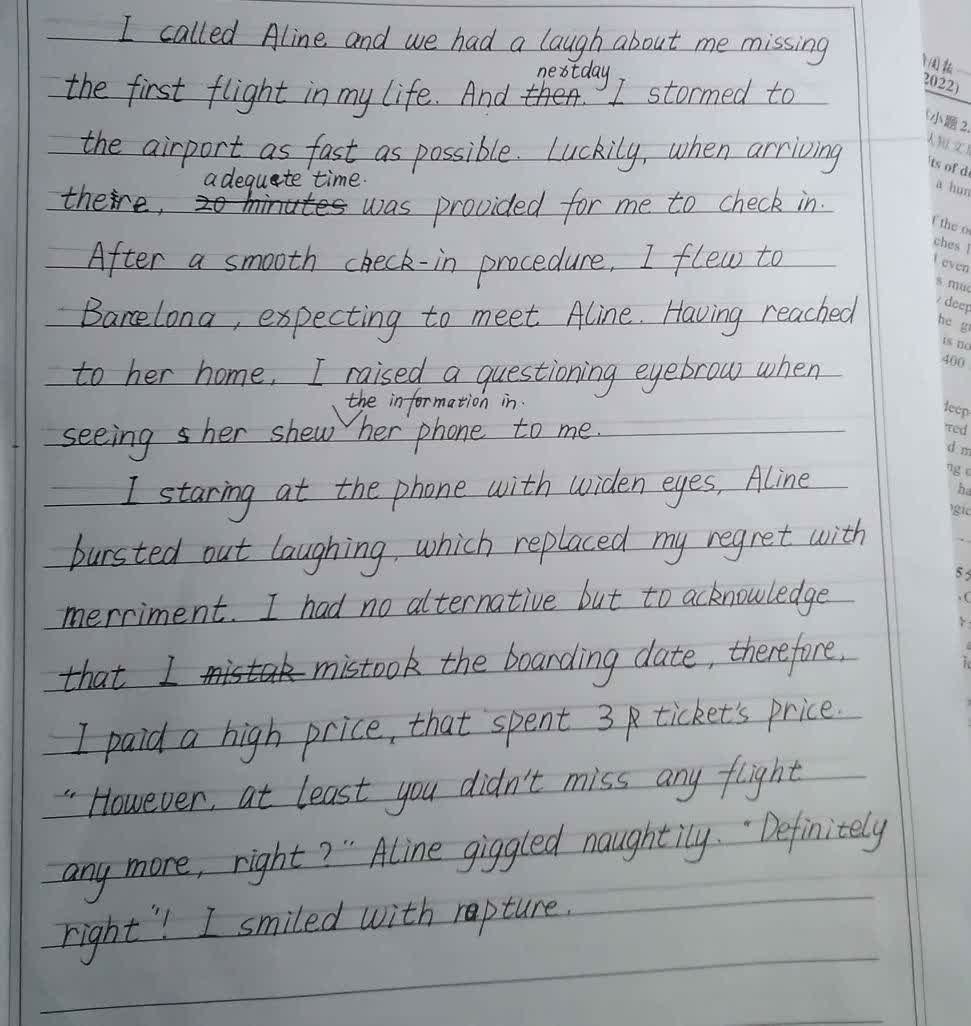 I called Aline and we had a laugh about me missing
the first flight in my life. And then next day, I stormed to
the airport as fast as possible. Luckily, when arriving
there, 20 minutes adequate time was provided for me to check in.
After a smooth check-in procedure, I flew to
Barcelona, expecting to meet Aline. Having reached
to her home, I raised a questioning eyebrow when
seeing her shew the information in her phone to me.
I staring at the phone with widen eyes, Aline
bursted out laughing, which replaced my regret with
merriment. I had no alternative but to acknowledge
that I mistak mistook the boarding date, therefore,
I paid a high price, that spent 3 ticket's price.
"However, at least you didn't miss any flight
any more, right?" Aline giggled naughtily. "Definitely
right"! I smiled with rapture.
2022)
小题2.
its of de
a hun
f the
ches
even
deep
he g
is no
400
deep
red
d m
ng
ha